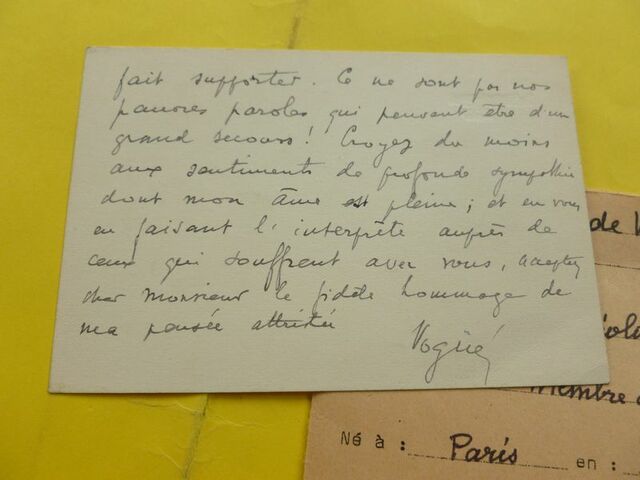 fait supporter. Ce ne sont pas nos
pauvres paroles qui peuvent être d'un
grand secours! Croyez du moins
aux sentiments de profonde sympathie
dont mon âme est pleine; et en vous
en faisant l'interprète auprès de
ceux qui souffrent avec vous, acceptez
cher Monsieur le fidèle hommage de
ma pensée attristée
Vogüé
de V
Membre
Né à : Paris en :